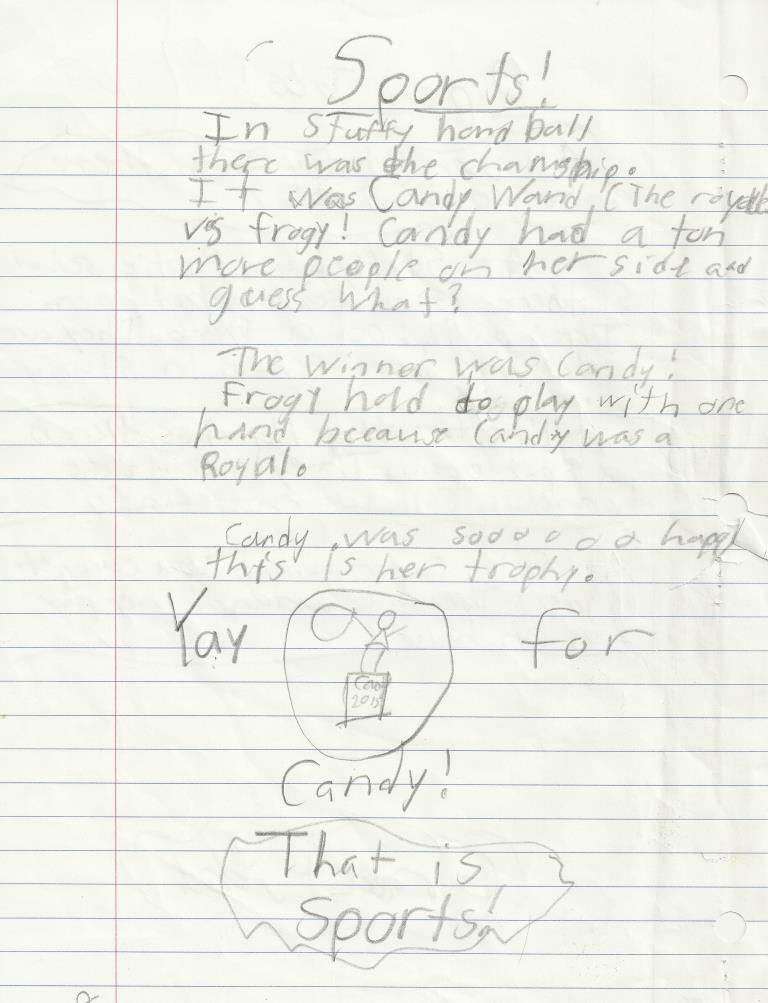 Sports!
In Stuffy hand ball
there was the chamship.
It was Candy Wand (The royal
vs frogy! Candy had a ton
more people on her side and
guess what?
The winner was Candy!
Frogy hald to play with one
hand beecause Candy was a
Royal.
Candy was soooooo happy
this is her trophy.
Yay for
Candy
2015
Candy!
That is
Sports!